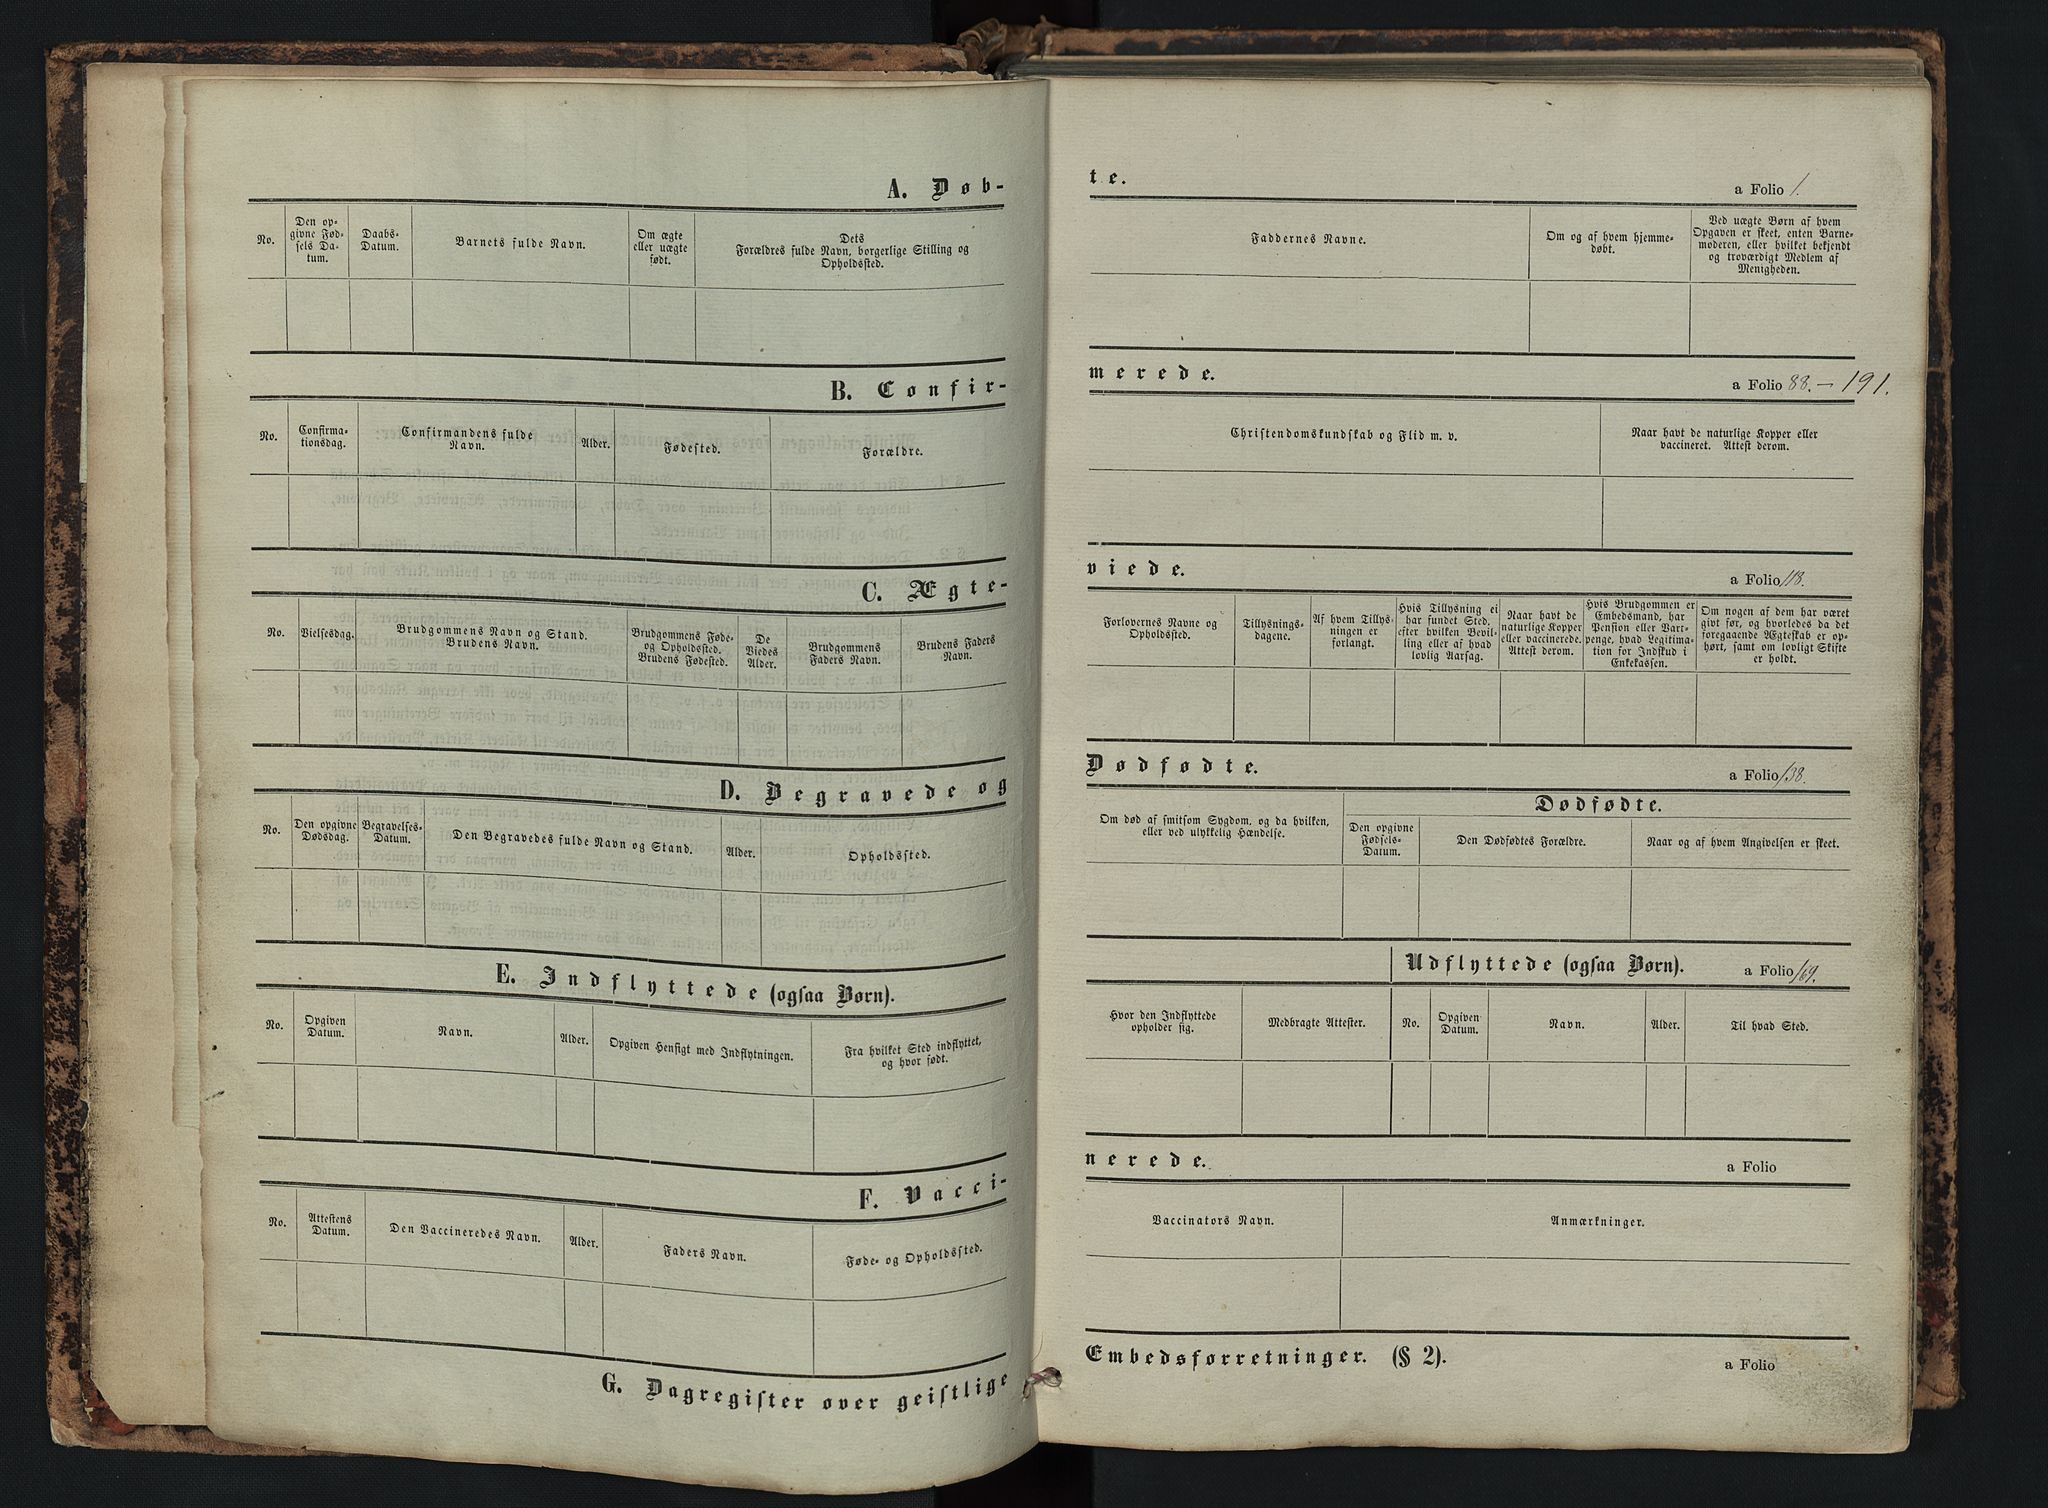 A. Døb-
te.
a Folio 1.
No.
Den op-
givne Fød-
sels Da-
tum.
Daabs-
Datum.
Barnets fulde Navn.
Om ægte
eller uægte
født.
Dets
Forældres fulde Navn, borgerlige Stilling og
Opholdssted.
Faddernes Navne.
Om og af hvem hjemme-
døbt.
Ved uægte Børn af hvem
Opgaven er skeet, enten Barne-
moderen, eller hvilket bekjendt
og troværdigt Medlem af
Menigheden.
B. Confir-
merede.
a Folio 88. – 191.
No.
Confirma-
tionsdag.
Confirmandens fulde
Navn.
Alder.
Fødested.
Forældre.
Christendomskundskab og Flid m. v.
Naar havt de naturlige Kopper eller
vaccineret. Attest derom.
C. Ægte-
viede.
a Folio 118.
No.
Vielsesdag.
Brudgommens Navn og Stand.
Brudens Navn.
Brudgommens Føde-
og Opholdssted.
Brudens Fødested.
De
Viedes
Alder.
Brudgommens
Faders Navn.
Brudens Faders
Navn.
Forlovernes Navne og
Opholdssted.
Tillysnings-
dagene.
Af hvem Tillys-
ningen er
forlangt.
Hvis Tillysning ei
har fundet Sted,
efter hvilken Bevil-
ling eller af hvad
lovlig Aarsag.
Naar havt de
naturlige Kopper
eller vaccinerede.
Attest derom.
Hvis Brudgommen er
Embedsmand, har
Pension eller Vart-
penge, hvad Legitima-
tion for Indskud i
Enkekassen.
Om nogen af dem har været
givt før, og hvorledes da det
foregaaende Ægteskab er op-
hørt, samt om lovligt Skifte
er holdt.
D. Begravede og
Dødfødte.
a Folio 138.
No.
Den opgivne
Dødsdag.
Begravelses-
Datum.
Den Begravedes fulde Navn og Stand.
Alder.
Opholdssted.
Om død af smitsom Sygdom, og da hvilken,
eller ved ulykkelig Hændelse.
Dødfødte.
Den opgivne
Fødsels-
Datum.
Den Dødfødtes Forældre.
Naar og af hvem Angivelsen er skeet.
E. Indflyttede (ogsaa Børn).
Udflyttede (ogsaa Børn).
a Folio 169.
No.
Opgiven
Datum.
Navn.
Alder.
Opgiven Hensigt med Indflytningen.
Fra hvilket Sted indflyttet,
og hvor født.
Hvor den Indflyttede
opholder sig.
Medbragte Attester.
No.
Opgiven
Datum.
Navn.
Alder.
Til hvad Sted.
F. Vacci-
nerede.
a Folio
No.
Attestens
Datum.
Den Vaccineredes Navn.
Alder.
Faders Navn.
Føde- og Opholdssted.
Vaccinators Navn.
Anmærkninger.
G. Dagregister over geistlige
Embedsforretninger. (§ 2).
a Folio